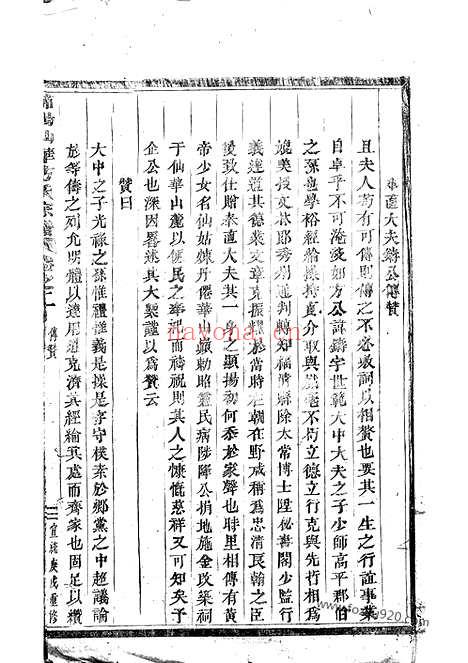 奉直大夫鑄公傳贊
且夫人苟有可傳則傳之不必敘詞以相贊也要其一生之行誼事業
自卓乎不可淹沒如方公諱鑄字世範大中大夫之子少師高平郡伯
之孫也學裕經綸操持貞介取與纖毫不苟立德立行克與先哲相爲
媲美授文林郎秀州通判轉知福清縣除太常博士陞秘書閣少監行
義達道其德業文章克振響於當時在朝在野咸稱爲忠清良翰之臣
後致仕贈奉直大夫其一身之顯揚初何忝於家聲也耶里相傳有黃
帝少女名仙姑煉丹僊華山巔勅昭靈民病陟降公捐地施金改築祠
于仙華山麓以便民之奉祀而禱祝則其人之慷慨慈祥又可知矣予
企公也深因畧述其大槩謹以爲贊云
贊曰
大中之子光祿之孫惟禮惟義是操是存守樸素於鄉黨之中超議論
於等儔之列允明體以達用克濟其經綸矣處而齊家也固足以纘
傳贊
宣統庚戌重修